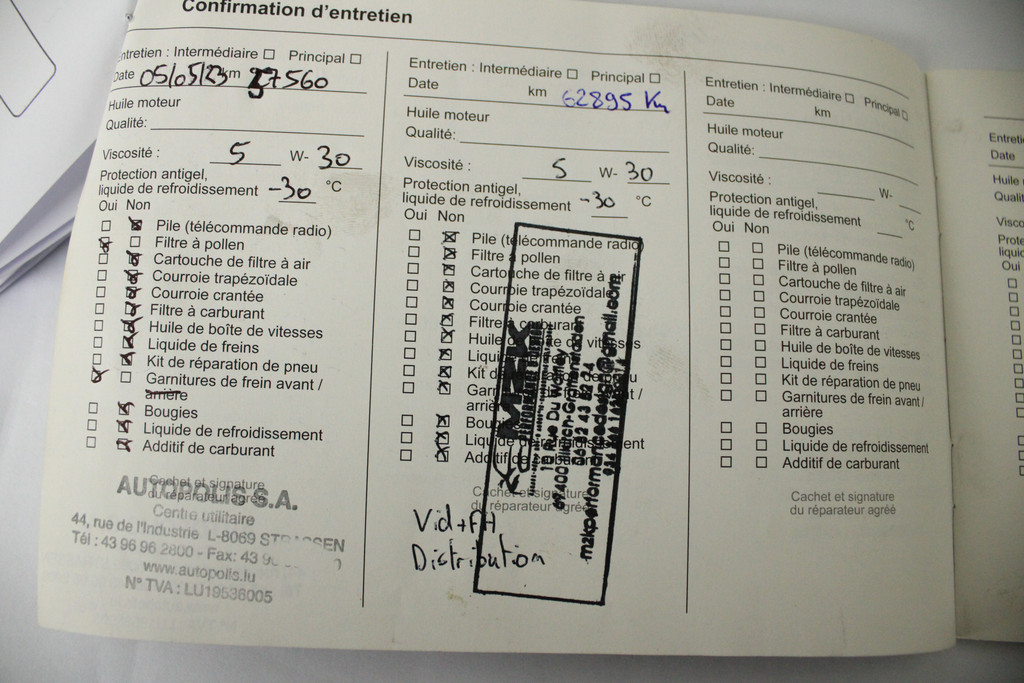 Confirmation d'entretien
Entretien : Intermédiaire ☐ Principal ☐
Date 05/05/23 km 37560
Huile moteur
Qualité:
Viscosité : 5 W- 30
Protection antigel,
liquide de refroidissement -30 °C
Oui Non
Pile (télécommande radio)
Filtre à pollen
Cartouche de filtre à air
Courroie trapézoïdale
Courroie crantée
Filtre à carburant
Huile de boîte de vitesses
Liquide de freins
Kit de réparation de pneu
Garnitures de frein avant /
arrière
Bougies
Liquide de refroidissement
Additif de carburant
Cachet et signature
du réparateur agréé
AUTOPOLIS S.A.
Centre utilitaire
44, rue de l'Industrie L-8069 STRASSEN
Tél : 43 96 96 2800 - Fax: 43 9
www.autopolis.lu
N° TVA : LU19538005
Entretien : Intermédiaire ☐ Principal ☐
Date km 62895 Km
Huile moteur
Qualité:
Viscosité : 5 W- 30
Protection antigel,
liquide de refroidissement -30 °C
Oui Non
Pile (télécommande radio)
Filtre à pollen
Cartouche de filtre à air
Courroie trapézoïdale
Courroie crantée
Filtre à carburant
Huile de boîte de vitesses
Liquide de freins
Kit de réparation de pneu
Garnitures de frein avant /
arrière
Bougies
Liquide de refroidissement
Additif de carburant
Cachet et signature
du réparateur agréé
Vid + FH
Distribution
10 Rue Du
06 32 43 52 24
@gmail.com
Entretien : Intermédiaire ☐ Principal ☐
Date km
Huile moteur
Qualité:
Viscosité : W-
Protection antigel,
liquide de refroidissement °C
Oui Non
Pile (télécommande radio)
Filtre à pollen
Cartouche de filtre à air
Courroie trapézoïdale
Courroie crantée
Filtre à carburant
Huile de boîte de vitesses
Liquide de freins
Kit de réparation de pneu
Garnitures de frein avant /
arrière
Bougies
Liquide de refroidissement
Additif de carburant
Cachet et signature
du réparateur agréé
Entreti
Date
Huile
Qualit
Visco
Prote
liquid
Oui